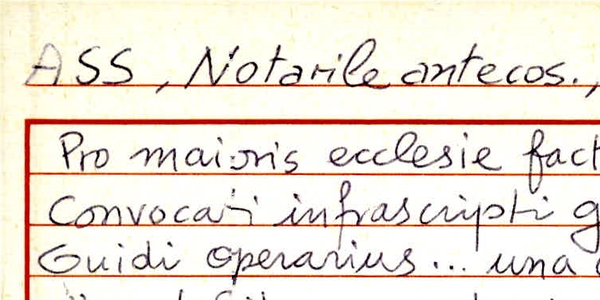 ASS, Notarile antecos.,
Pro maioris ecclesie fact
Convocati infrascripti g
Guidi operarius... una